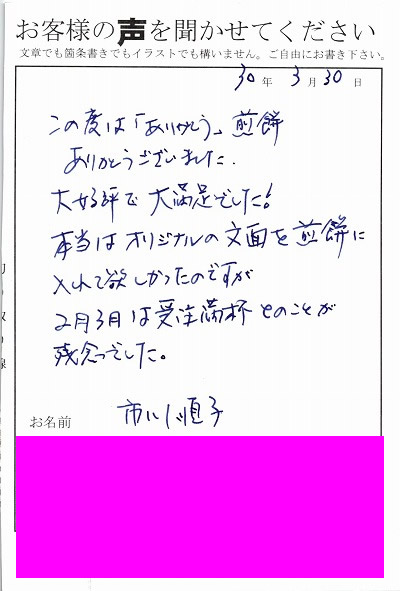 お客様の声を聞かせてください
文章でも箇条書きでもイラストでも構いません。ご自由にお書き下さい。
30年 3月 30日
この度は「ありがとう」煎餅
ありがとうございました.
大好評で大満足でした!
本当はオリジナルの文面を煎餅に
入れて欲しかったのですが
2月3月は受注満杯とのことが
残念でした。
お名前 市川順子